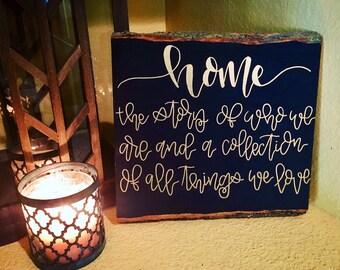 home
the story of who we
are and a collection
of all things we love